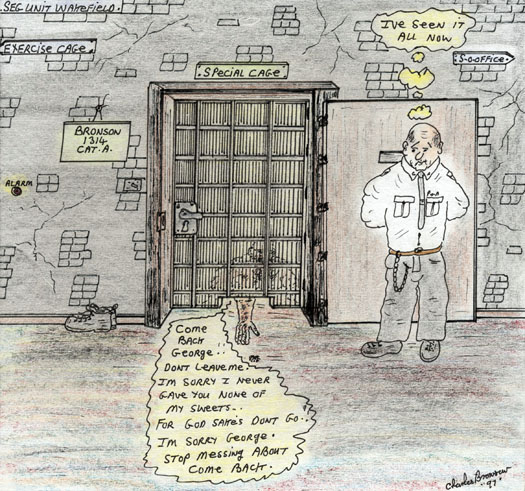 SEG UNIT WAKEFIELD.
EXERCISE CAGE.
SPECIAL CAGE.
I'VE SEEN IT
ALL NOW
S-O-OFFICE.
BRONSON
1314
CAT. A.
ALARM
COME
BACK
GEORGE..
DONT LEAVE ME.
IM SORRY I NEVER
GAVE YOU NONE OF
MY SWEETS..
FOR GOD SAKE'S DONT GO..
IM SORRY GEORGE.
STOP MESSING ABOUT
COME BACK.
Charles Bronson
"97"